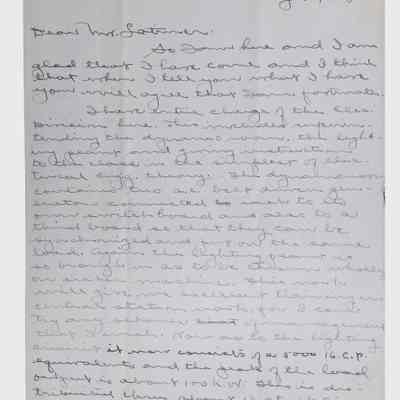 Dear Mr. Latimer:
So I am here and I am
glad that I have come and I think
that when I tell you what I have
you will agree that I am fortunate.
I have entire charge of the Elec.
Division here. This includes superin-
tending the dynamo room, the light-
ing plant and giving instruction
to the class in the simplest of elec-
trical Eng. theory. The dynamo room
contains two belt driven gen-
erators connected each to its
own switchboard and also to a
third board so that they can be
synchronized and put on the same
load. Again the lighting plant is
so brought in as to be thrown wholly
on either machine. This work
will give me excellent training in
central station work, for I can
try any scheme of management
that I wish. Now as to the lighting
it now consists of a 5000 16 C.P.
equivalents and the peak of the load
output is about 100 K.W. This is dis-
tributed